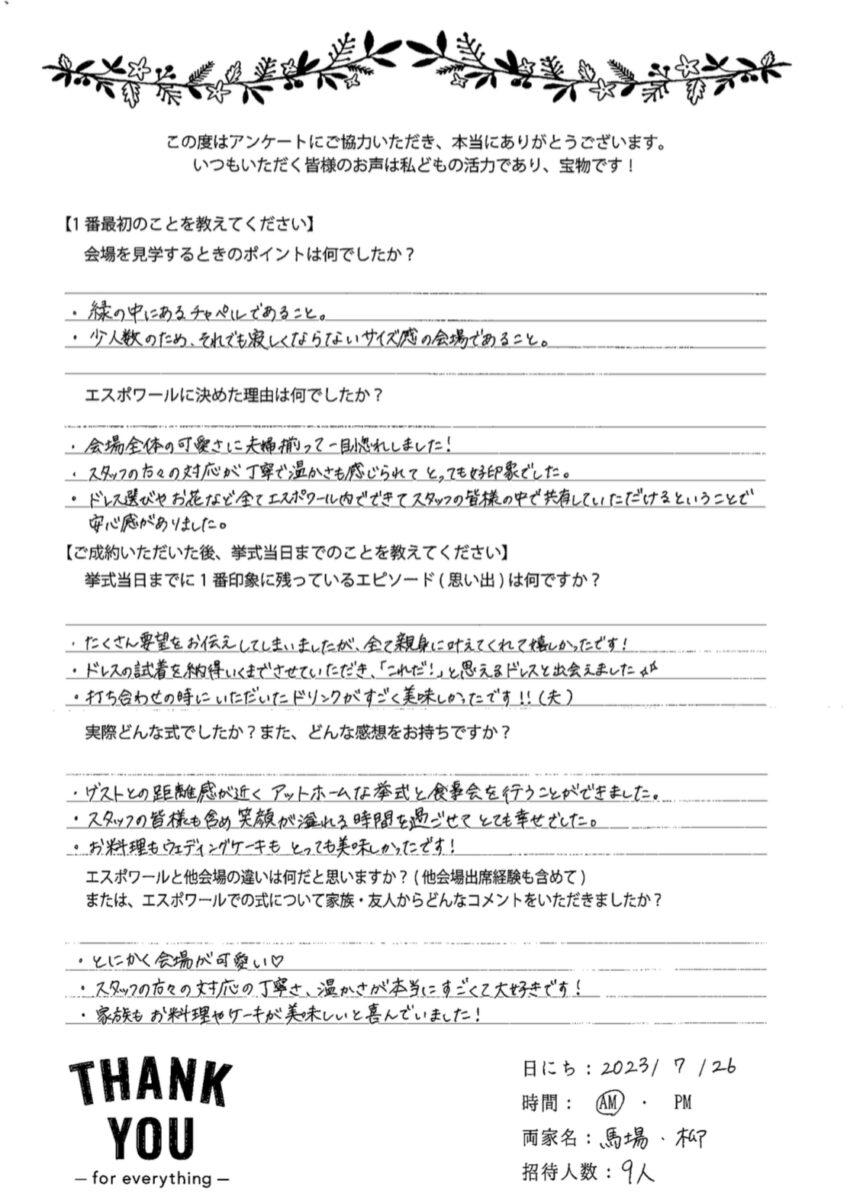 この度はアンケートにご協力いただき、本当にありがとうございます。
いつもいただく皆様のお声は私どもの活力であり、宝物です！
【1番最初のことを教えてください】
会場を見学するときのポイントは何でしたか？
・緑の中にあるチャペルであること。
・少人数のため、それでも寂しくならないサイズ感の会場であること。
エスポワールに決めた理由は何でしたか？
・会場全体の可愛さに夫婦揃って一目惚れしました！
・スタッフの方々の対応が丁寧で温かさも感じられてとっても好印象でした。
・ドレス選びやお花など全てエスポワール内でできてスタッフの皆様の中で共有していただけるということで
安心感がありました。
【ご成約いただいた後、挙式当日までのことを教えてください】
挙式当日までに1番印象に残っているエピソード(思い出)は何ですか？
・たくさん要望をお伝えしてしまいましたが、全て親身に叶えてくれて嬉しかったです！
・ドレスの試着を納得いくまでさせていただき、「これだ！」と思えるドレスと出会えました
・打ち合わせの時にいただいたドリンクがすごく美味しかったです!!(夫)
実際どんな式でしたか？また、どんな感想をお持ちですか？
・ゲストとの距離感が近くアットホームな挙式と食事会を行うことができました。
・スタッフの皆様も含め笑顔が溢れる時間を過ごせてとても幸せでした。
・お料理もウェディングケーキもとっても美味しかったです！
エスポワールと他会場の違いは何だと思いますか？(他会場出席経験も含めて)
または、エスポワールでの式について家族・友人からどんなコメントをいただきましたか？
・とにかく会場が可愛い♡
・スタッフの方々の対応の丁寧さ、温かさが本当にすごくて大好きです！
・家族もお料理やケーキが美味しいと喜んでいました！
THANK
YOU
– for everything –
日にち：2023/ 7 /26
時間： AM ・ PM
両家名：馬場・柳
招待人数：9人